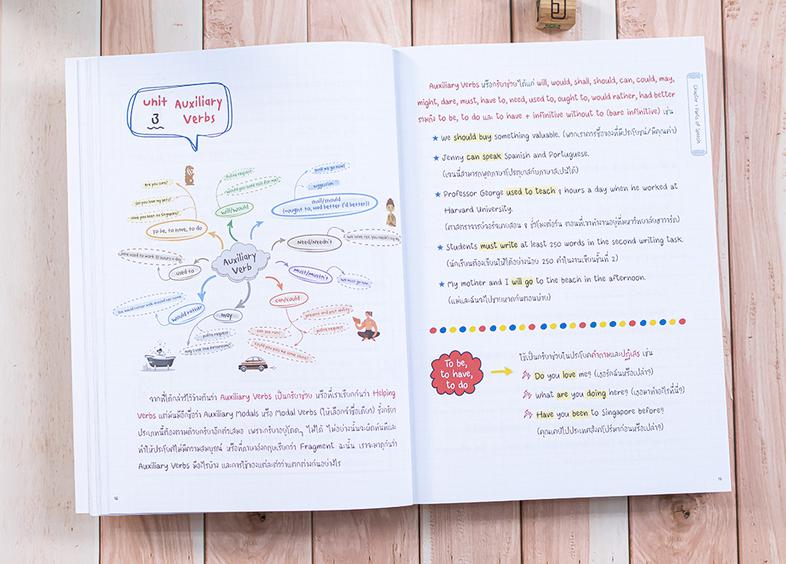 unit 3
Auxiliary
Verbs
Are you cold?
Do you love my pets?
Have you been to Singapore?
to be, to have, to do
polite request
will/would
suggestion
shall/should
(ought to, had better ('d better))
need/needn't
must/mustn't
can/could
polite request
may
polite request
would rather
used to
Auxiliary
Verb
จากที่ได้กล่าวไว้ข้างต้นว่า Auxiliary Verbs เป็นกริยาช่วย หรือที่เราเรียกกันว่า Helping
Verbs แต่มันมีอีกชื่อว่า Auxiliary Modals หรือ Modal Verbs (ให้เลือกจำชื่อเดียว) ซึ่งกริยา
ประเภทนี้ต้องตามด้วยกริยาอีกตัวเสมอ เพราะกริยาอยู่โดดๆ ไม่ได้ ไม่อย่างนั้นจะผิดทันทีและ
ทำให้ประโยคไม่มีความสมบูรณ์ หรือที่ภาษาอังกฤษเรียกว่า Fragment ฉะนั้น เราจะมาดูกันว่า
Auxiliary Verbs มีอะไรบ้าง และการใช้ของแต่ละตัวว่าแตกต่างกันอย่างไร
Chapter 1 Parts of Speech
Auxiliary Verbs หรือกริยาช่วย ได้แก่ will, would, shall, should, can, could, may,
might, dare, must, have to, need, used to, ought to, would rather, had better
รวมถึง to be, to do และ to have + infinitive without to (bare infinitive) เช่น
★ We should buy something valuable. (พวกเราควรซื้อของที่มีประโยชน์/มีคุณค่า)
★ Jenny can speak Spanish and Portuguese.
(เจนนี่สามารถพูดภาษาโปรตุเกสกับภาษาสเปนได้)
★ Professor George used to teach 8 hours a day when he worked at
Harvard University.
(ศาสตราจารย์จอร์จเคยสอน 8 ชั่วโมงต่อวัน ตอนที่เขาทำงานอยู่ที่มหาวิทยาลัยฮาร์วาร์ด)
★ Students must write at least 250 words in the second writing task.
(นักเรียนต้องเขียนให้ได้อย่างน้อย 250 คำในงานเขียนชิ้นที่ 2)
★ My mother and I will go to the beach in the afternoon.
(แม่และฉันจะไปชายหาดกันตอนบ่าย)
To be,
to have,
to do
ใช้เป็นกริยาช่วยในประโยคคำถามและปฏิเสธ เช่น
Do you love me? (เธอรักฉันหรือเปล่า?)
What are you doing here? (เธอมาทำอะไรที่นี่?)
Have you been to Singapore before?
(คุณเคยไปประเทศสิงคโปร์มาก่อนหรือเปล่า?)